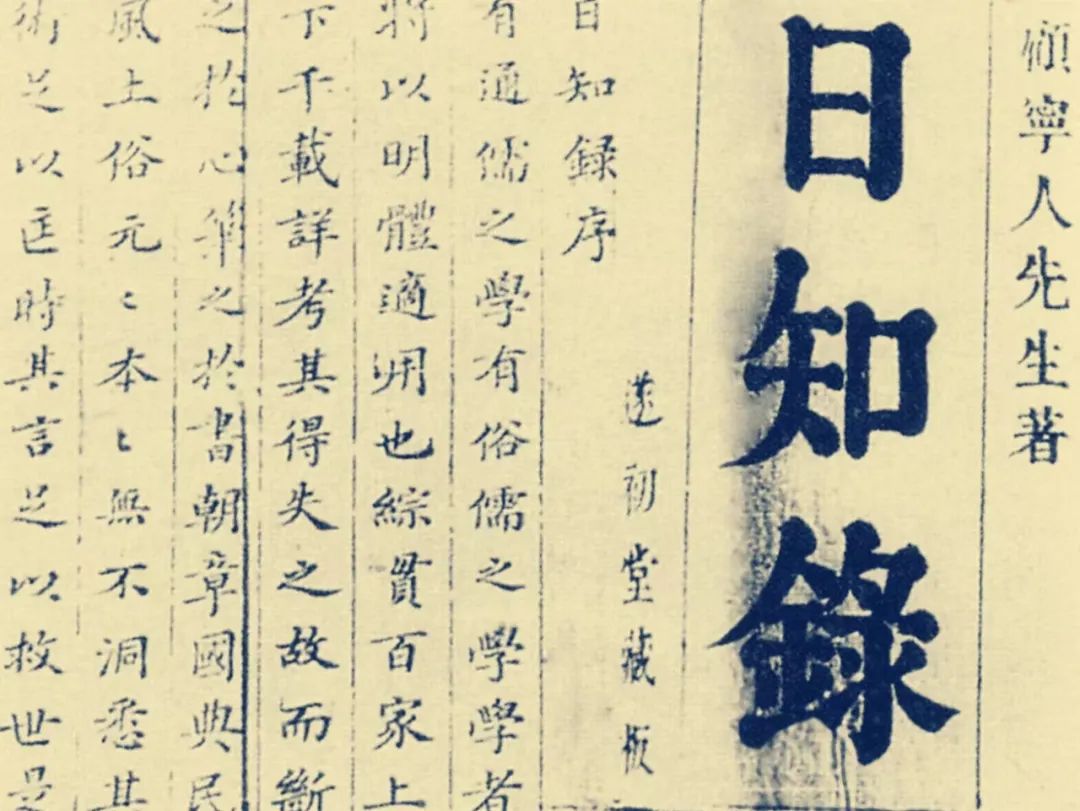 顧寧人先生著
日知錄
遂初堂藏板
日知録序
有通儒之學有俗儒之學學者
將以明體適用也綜貫百家上
下千載詳考其得失之故而斷
之於心筆之於書朝章國典民
風土俗元〻本〻無不洞悉其
術足以匡時其言足以救世是